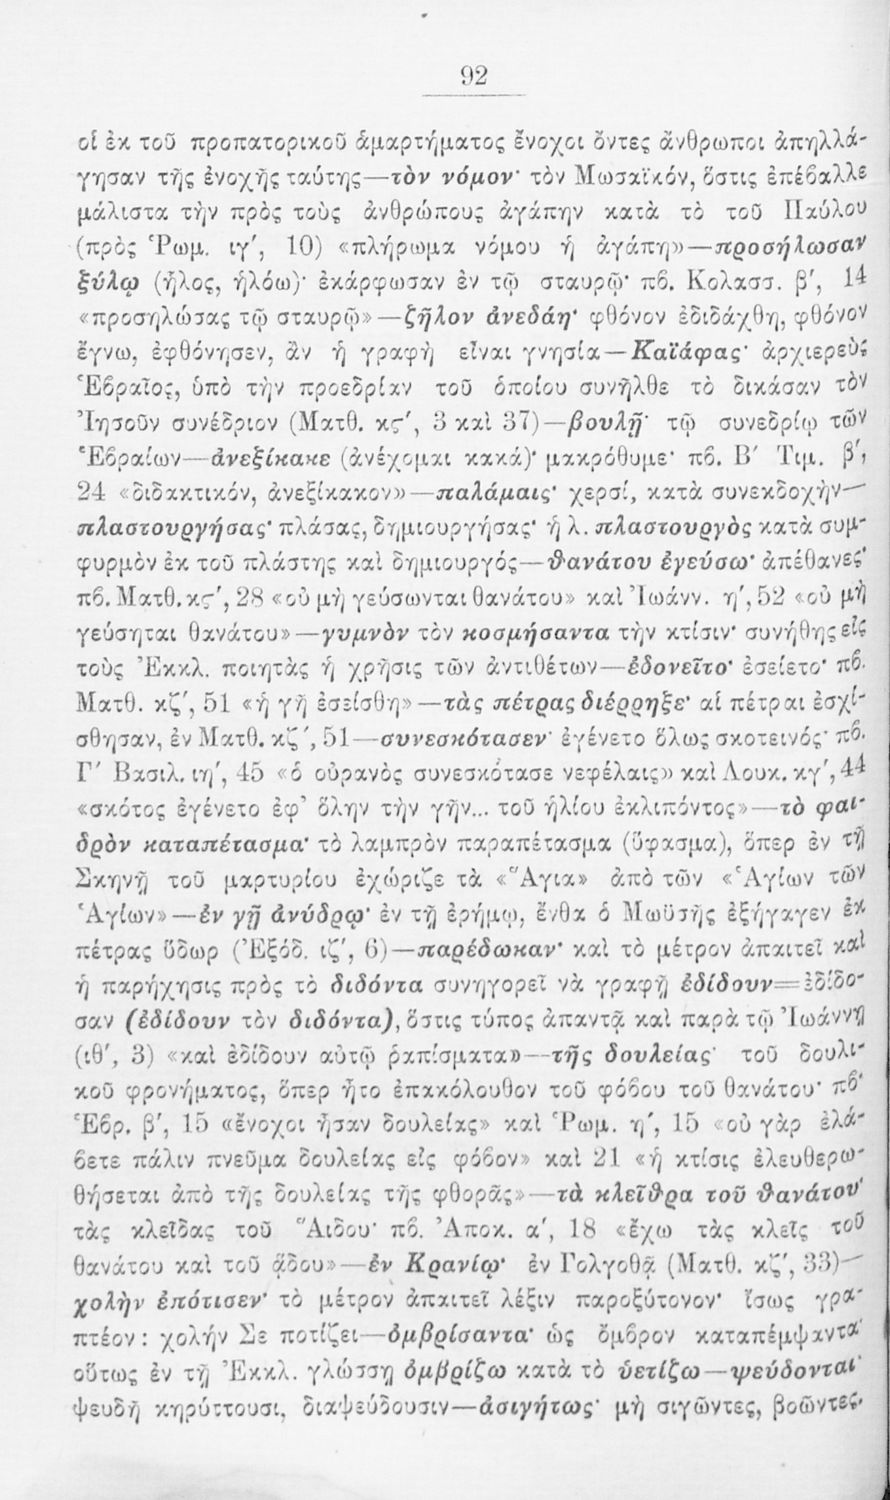 92
οἱ ἐκ τοῦ προπατορικοῦ ἁμαρτήματος ἔνοχοι ὄντες ἄνθρωποι ἀπηλλά-
γησαν τῆς ἐνοχῆς ταύτης—τὸν νόμον· τὸν Μωσαϊκόν, ὅστις ἐπέβαλλε
μάλιστα τὴν πρὸς τοὺς ἀνθρώπους ἀγάπην κατὰ τὸ τοῦ Παύλου
(πρὸς Ῥωμ. ιγ′, 10) «πλήρωμα νόμου ἡ ἀγάπη»—προσήλωσαν
ξύλῳ (ἧλος, ἡλόω)· ἐκάρφωσαν ἐν τῷ σταυρῷ· πβ. Κολασσ. β′, 14
«προσηλώσας τῷ σταυρῷ»—ζῆλον ἀνεδάη· φθόνον ἐδιδάχθη, φθόνον
ἔγνω, ἐφθόνησεν, ἂν ἡ γραφὴ εἶναι γνησία—Καϊάφας· ἀρχιερεὺς
Ἑβραῖος, ὑπὸ τὴν προεδρίαν τοῦ ὁποίου συνῆλθε τὸ δικάσαν τὸν
Ἰησοῦν συνέδριον (Ματθ. κϛ′, 3 καὶ 37)—βουλῇ· τῷ συνεδρίῳ τῶν
Ἑβραίων—ἀνεξίκακε (ἀνέχομαι κακά)· μακρόθυμε· πβ. Β′ Τιμ. β′,
24 «διδακτικόν, ἀνεξίκακον»—παλάμαις· χερσί, κατὰ συνεκδοχὴν—
πλαστουργήσας· πλάσας, δημιουργήσας· ἡ λ. πλαστουργὸς κατὰ συμ-
φυρμὸν ἐκ τοῦ πλάστης καὶ δημιουργός—θανάτου ἐγεύσω· ἀπέθανες·
πβ. Ματθ. κϛ′, 28 «οὐ μὴ γεύσωνται θανάτου» καὶ Ἰωάνν. η′, 52 «οὐ μὴ
γεύσηται θανάτου»—γυμνὸν τὸν κοσμήσαντα τὴν κτίσιν· συνήθης εἰς
τοὺς Ἐκκλ. ποιητὰς ἡ χρῆσις τῶν ἀντιθέτων—ἐδονεῖτο· ἐσείετο· πβ.
Ματθ. κζ′, 51 «ἡ γῆ ἐσείσθη»—τὰς πέτρας διέρρηξε· αἱ πέτραι ἐσχί-
σθησαν, ἐν Ματθ. κζ′, 51—συνεσκότασεν· ἐγένετο ὅλως σκοτεινός· πβ.
Γ′ Βασιλ. ιη′, 45 «ὁ οὐρανὸς συνεσκότασε νεφέλαις» καὶ Λουκ. κγ′, 44
«σκότος ἐγένετο ἐφ' ὅλην τὴν γῆν... τοῦ ἡλίου ἐκλιπόντος»—τὸ φαι-
δρὸν καταπέτασμα· τὸ λαμπρὸν παραπέτασμα (ὕφασμα), ὅπερ ἐν τῇ
Σκηνῇ τοῦ μαρτυρίου ἐχώριζε τὰ «Ἅγια» ἀπὸ τῶν «Ἁγίων τῶν
Ἁγίων»—ἐν γῇ ἀνύδρῳ· ἐν τῇ ἐρήμῳ, ἔνθα ὁ Μωϋσῆς ἐξήγαγεν ἐκ
πέτρας ὕδωρ (Ἐξόδ. ιζ′, 6)—παρέδωκαν· καὶ τὸ μέτρον ἀπαιτεῖ καὶ
ἡ παρήχησις πρὸς τὸ διδόντα συνηγορεῖ νὰ γραφῇ ἐδίδουν=ἐδίδο-
σαν (ἐδίδουν τὸν διδόντα), ὅστις τύπος ἀπαντᾷ καὶ παρὰ τῷ Ἰωάννῃ
(ιθ′, 3) «καὶ ἐδίδουν αὐτῷ ῥαπίσματα»—τῆς δουλείας· τοῦ δουλι-
κοῦ φρονήματος, ὅπερ ἦτο ἐπακόλουθον τοῦ φόβου τοῦ θανάτου· πβ.
Ἑβρ. β′, 15 «ἔνοχοι ἦσαν δουλείας» καὶ Ῥωμ. η′, 15 «οὐ γὰρ ἐλά-
βετε πάλιν πνεῦμα δουλείας εἰς φόβον» καὶ 21 «ἡ κτίσις ἐλευθερω-
θήσεται ἀπὸ τῆς δουλείας τῆς φθορᾶς»—τὰ κλεῖθρα τοῦ θανάτου·
τὰς κλεῖδας τοῦ Ἅιδου· πβ. Ἀποκ. α′, 18 «ἔχω τὰς κλεῖς τοῦ
θανάτου καὶ τοῦ ᾅδου»—ἐν Κρανίῳ· ἐν Γολγοθᾷ (Ματθ. κζ′, 33)—
χολὴν ἐπότισεν· τὸ μέτρον ἀπαιτεῖ λέξιν παροξύτονον· ἴσως γρα-
πτέον: χολήν Σε ποτίζει—ὀμβρίσαντα· ὡς ὄμβρον καταπέμψαντα·
οὕτως ἐν τῇ Ἐκκλ. γλώσσῃ ὀμβρίζω κατὰ τὸ ὑετίζω—ψεύδονται·
ψευδῆ κηρύττουσι, διαψεύδουσιν—ἀσιγήτως· μὴ σιγῶντες, βοῶντες.